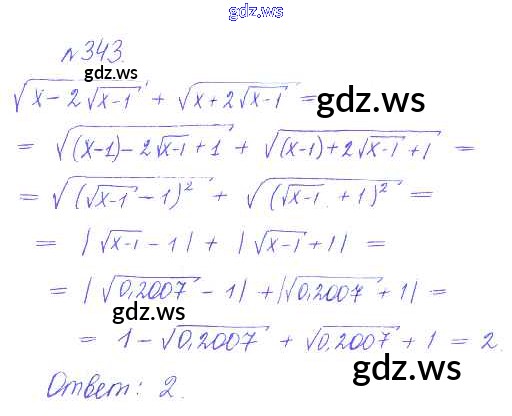 gdz.ws
№ 343.
gdz.ws
√(x-2√(x-1)) + √(x+2√(x-1)) =
gdz.ws
= √((x-1)-2√(x-1)+1) + √((x-1)+2√(x-1)+1) =
= √((√(x-1)-1)²) + √((√(x-1)+1)²) =
= |√(x-1)-1| + |√(x-1)+1| =
= |√0,2007 - 1| + |√0,2007 + 1| =
= 1 - √0,2007 + √0,2007 + 1 = 2.
gdz.ws
gdz.ws
Ответ: 2.